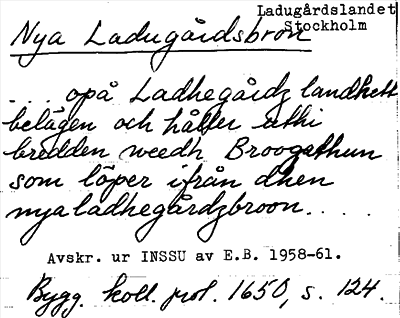 Ladugårdslandet
Stockholm
Nya Ladugårdsbron
... opå Ladhegårdz landhett
belägen och håller uthi
bredden weedh Broogathun
som löper ifrån dhen
nya ladhegårdzbroon.....
Avskr. ur INSSU av E.B. 1958-61.
Bygg. koll. prot. 1650, s. 124.